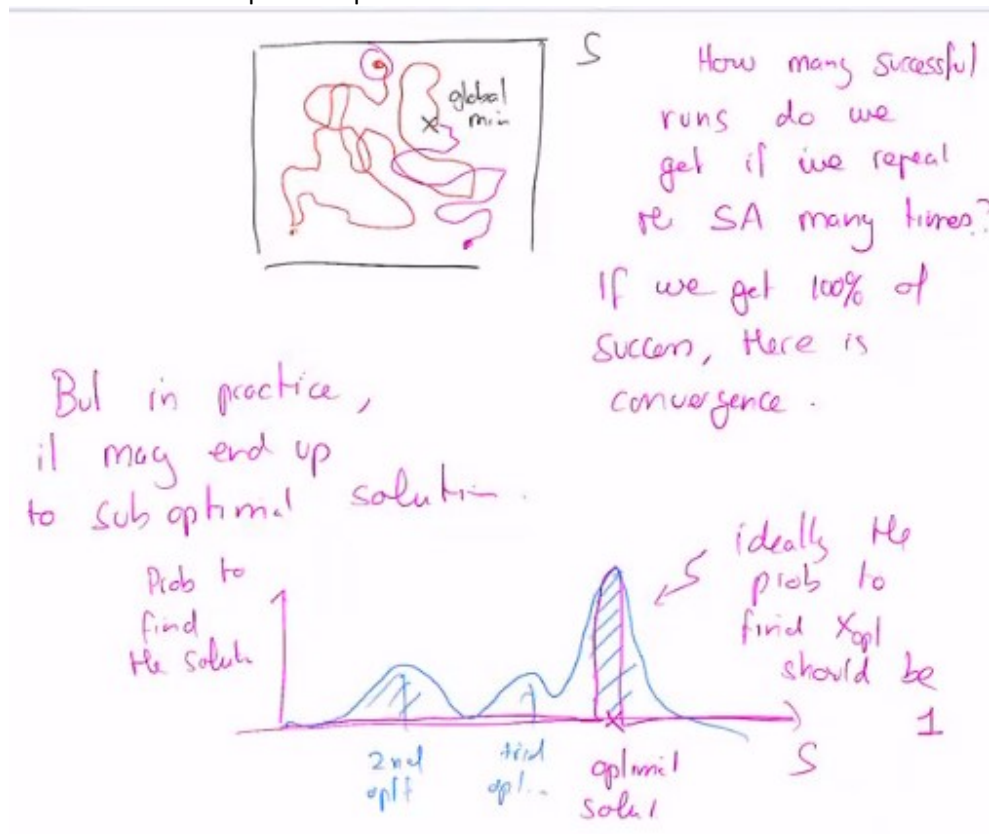 S
global
min
How many successful
runs do we
get if we repeat
the SA many times?
If we get 100% of
success, there is
convergence.
But in practice,
it may end up
to suboptimal solution.
Prob to
find
the solut
ideally the
prob to
find Xopt
should be
1
2nd
opt
third
opt...
optimal
solut
S